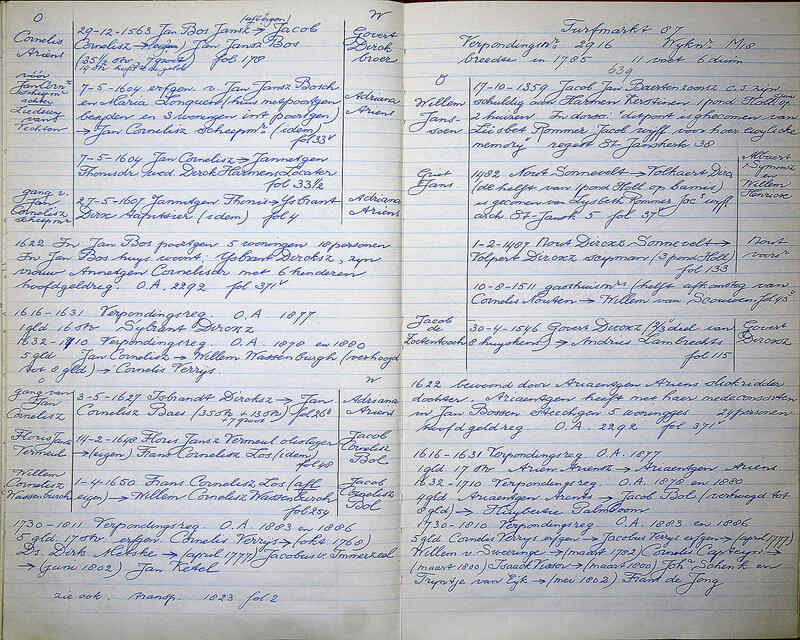 O
W
Cornelis
Ariens
29-12-1563 Jan Bos Jansz → Jacob
Cornelisz → (eigen) Jan Jansz Bos
fol 178
Govert
Dirck
broer
7-5-1604 erfgen. v. Jan Jansz Bosch
en Maria (huis met poortgen
en 3 woningen int poortgen)
→ Jan Cornelisz scheepmr (idem)
fol 33v
Adriana
Ariens
7-5-1604 Jan Cornelisz → Jannetgen
Thonisdr wed Dirck Harmensz
fol 33 1/2
gang v.
Jan
Cornelisz
scheepmr
27-5-1607 Jannitgen Thonis → IJsbrant
Dircx (idem) fol 4
Adriana
Ariens
1622 In Jan Bos poortgen 5 woningen 18 personen
In Jan Bos huys woont: Ysbrant Dircksz, zijn
vrouw Annetgen Cornelisdr met 6 kinderen
hoofdgeldreg. O.A. 2292 fol 371v
1616-1631 Verpondingsreg. O.A. 1877
1 gld 16 str Sybrant Dircxz
1632-1710 Verpondingsreg. O.A. 1878 en 1880
5 gld Jan Cornelisz → Willem Wassenburgh (verhoogd
tot 8 gld) → Cornelis Verrijs
O
W
gang van
Jan
Cornelisz
3-5-1627 IJsbrandt Dircksz → Jan
Cornelisz Baes (355 str + 135 str) fol 26v
Adriana
Ariens
Floris Jansz
Vermeul
14-2-1648 Floris Jansz Vermeul
→ (eigen) Frans Cornelisz Los (idem)
fol 48
Jacob
Cornelisz
Bol
Willem
Cornelisz
Wassenburch
1-4-1650 Frans Cornelisz Los (afl
eigen) → Willem Cornelisz Wassenburch
fol 254
Jacob
Cornelisz
Bol
1730-1811 Verpondingsreg. O.A. 1883 en 1886
5 gld. 17 str erfgen. Cornelis Verrijs → (okt 1768)
Ds. Dirk → (april 1777) Jacobus v. Immerzeel
→ (juni 1802) Jan Ketel
zie ook. transp. 1823 fol 2
Turfmarkt 87
Verpondingsnr. 2916 Wijknr. M18
breedte in 1785 11 voet 6 duim
O
Willem
Jans-
soen
17-10-1359 Jacob Jan Baertoenzoensz c.s. zijn
schuldig aan Harmen Kerstinen 1 pond Holl op
2 huizen. In dorso: dit pont is ghecomen van
Liisbet Rommer Jacob wijff voor hoer ewyliche
memory regest St-Janskerk 38
Griet
Jans
1482 Nout Sonnevelt → Volkaert Dirx
(de helft van 1 pond Holl op bamis)
is gecomen van Lysbeth Rommer Jac. wijff
arch St-Jansk 5 fol 37
Albaert
Symonsz
en
Willem
Henricx
1-2-1487 Nout Dircxz Sonnevelt →
Volpert Dircxz seepman (3 pond Holl)
fol 133
Nout
voirs
10-8-1511 gasthuismrs (helft afkomstig van
Cornelis Nouten → Willem van fol 93v
Jacob
de
30-4-1546 Govert Dircxz (2/3 deel van
8 huyskens) → Andries Lambrechts
fol 115
Govert
Dircxsz
1622 bewoond door Ariaentgen Ariens
dochter. Ariaentgen heeft met haer medeconsisten
in Jan Bossen steechgen 5 woningges 24 personen
hoofdgeldreg O.A. 2292 fol 371v
1616-1631 Verpondingsreg. O.A. 1877
1 gld 17 str Arien Ariensz → Ariaentgen Ariens
1632-1710 Verpondingsreg. O.A. 1878 en 1880
4 gld Ariaentgen Ariens → Jacob Bol (verhoogd tot
8 gld) → Huybertie Palmboom
1730-1810 Verpondingsreg. O.A. 1883 en 1886
5 gld Cornelis Verrys erfgen → Jacobus Verrys erfgen → (april 1777)
Willem v. Sweeringe → (maart 1782) Cornelis →
(maart 1800) Isaack Visser → (maart 1800) Joha Schenk en
Trijntje van Eijk → (mei 1802) Frans de Jong